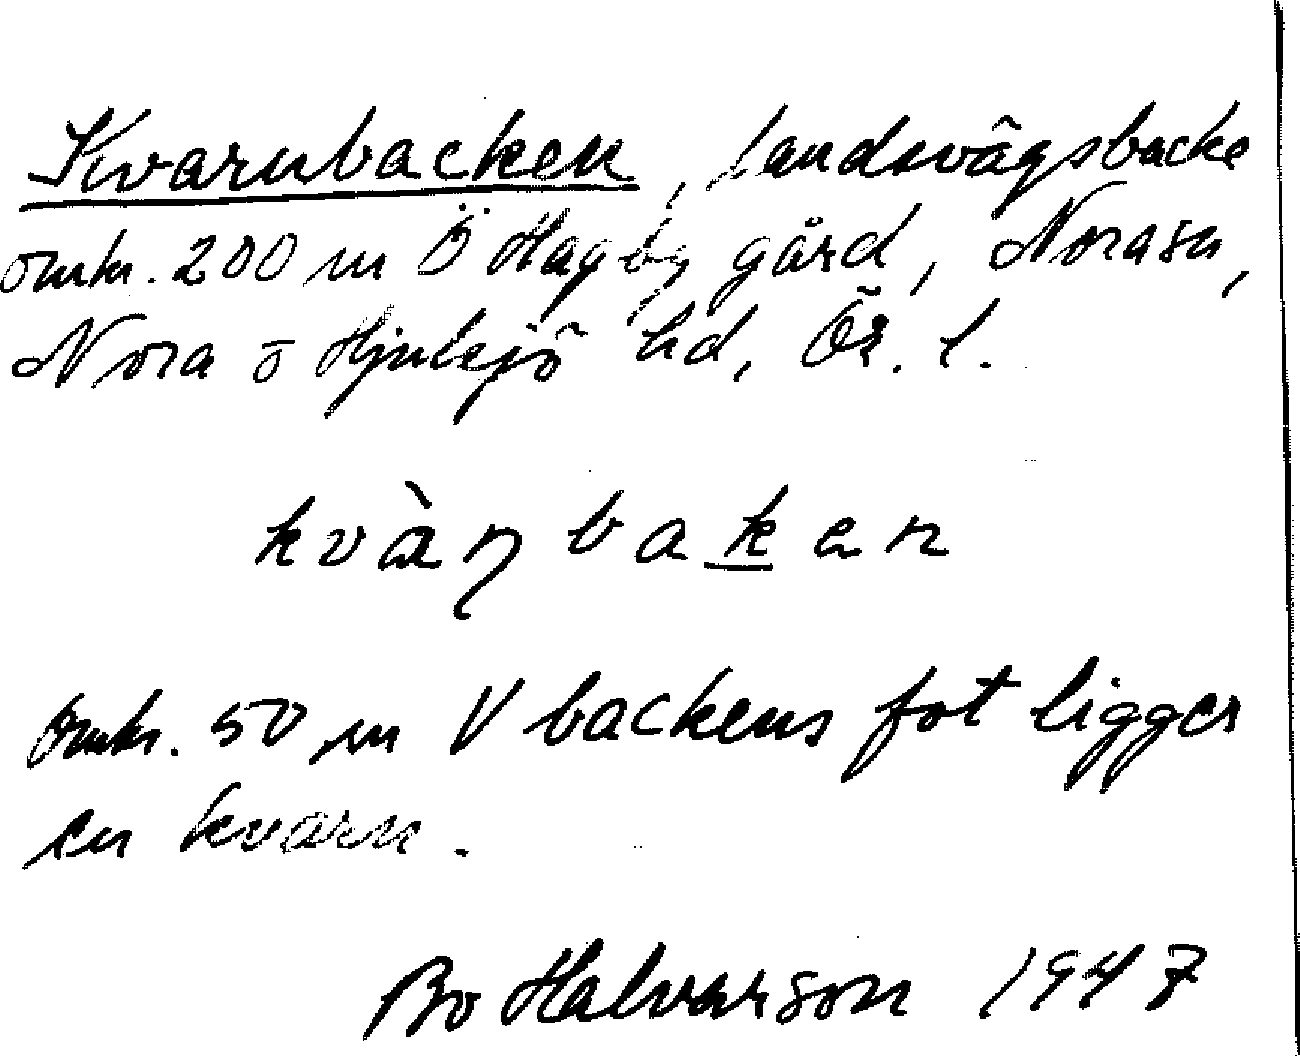 Kvarnbacken, landsvägsbacke
omkr. 200 m Ö Hagby gård, Norasn,
Nora o Hjulsjö hd, Ör. l.
kvàɳbaken
Omkr. 50 m V backens fot ligger
en kvarn.
Bo Halvarson 1947